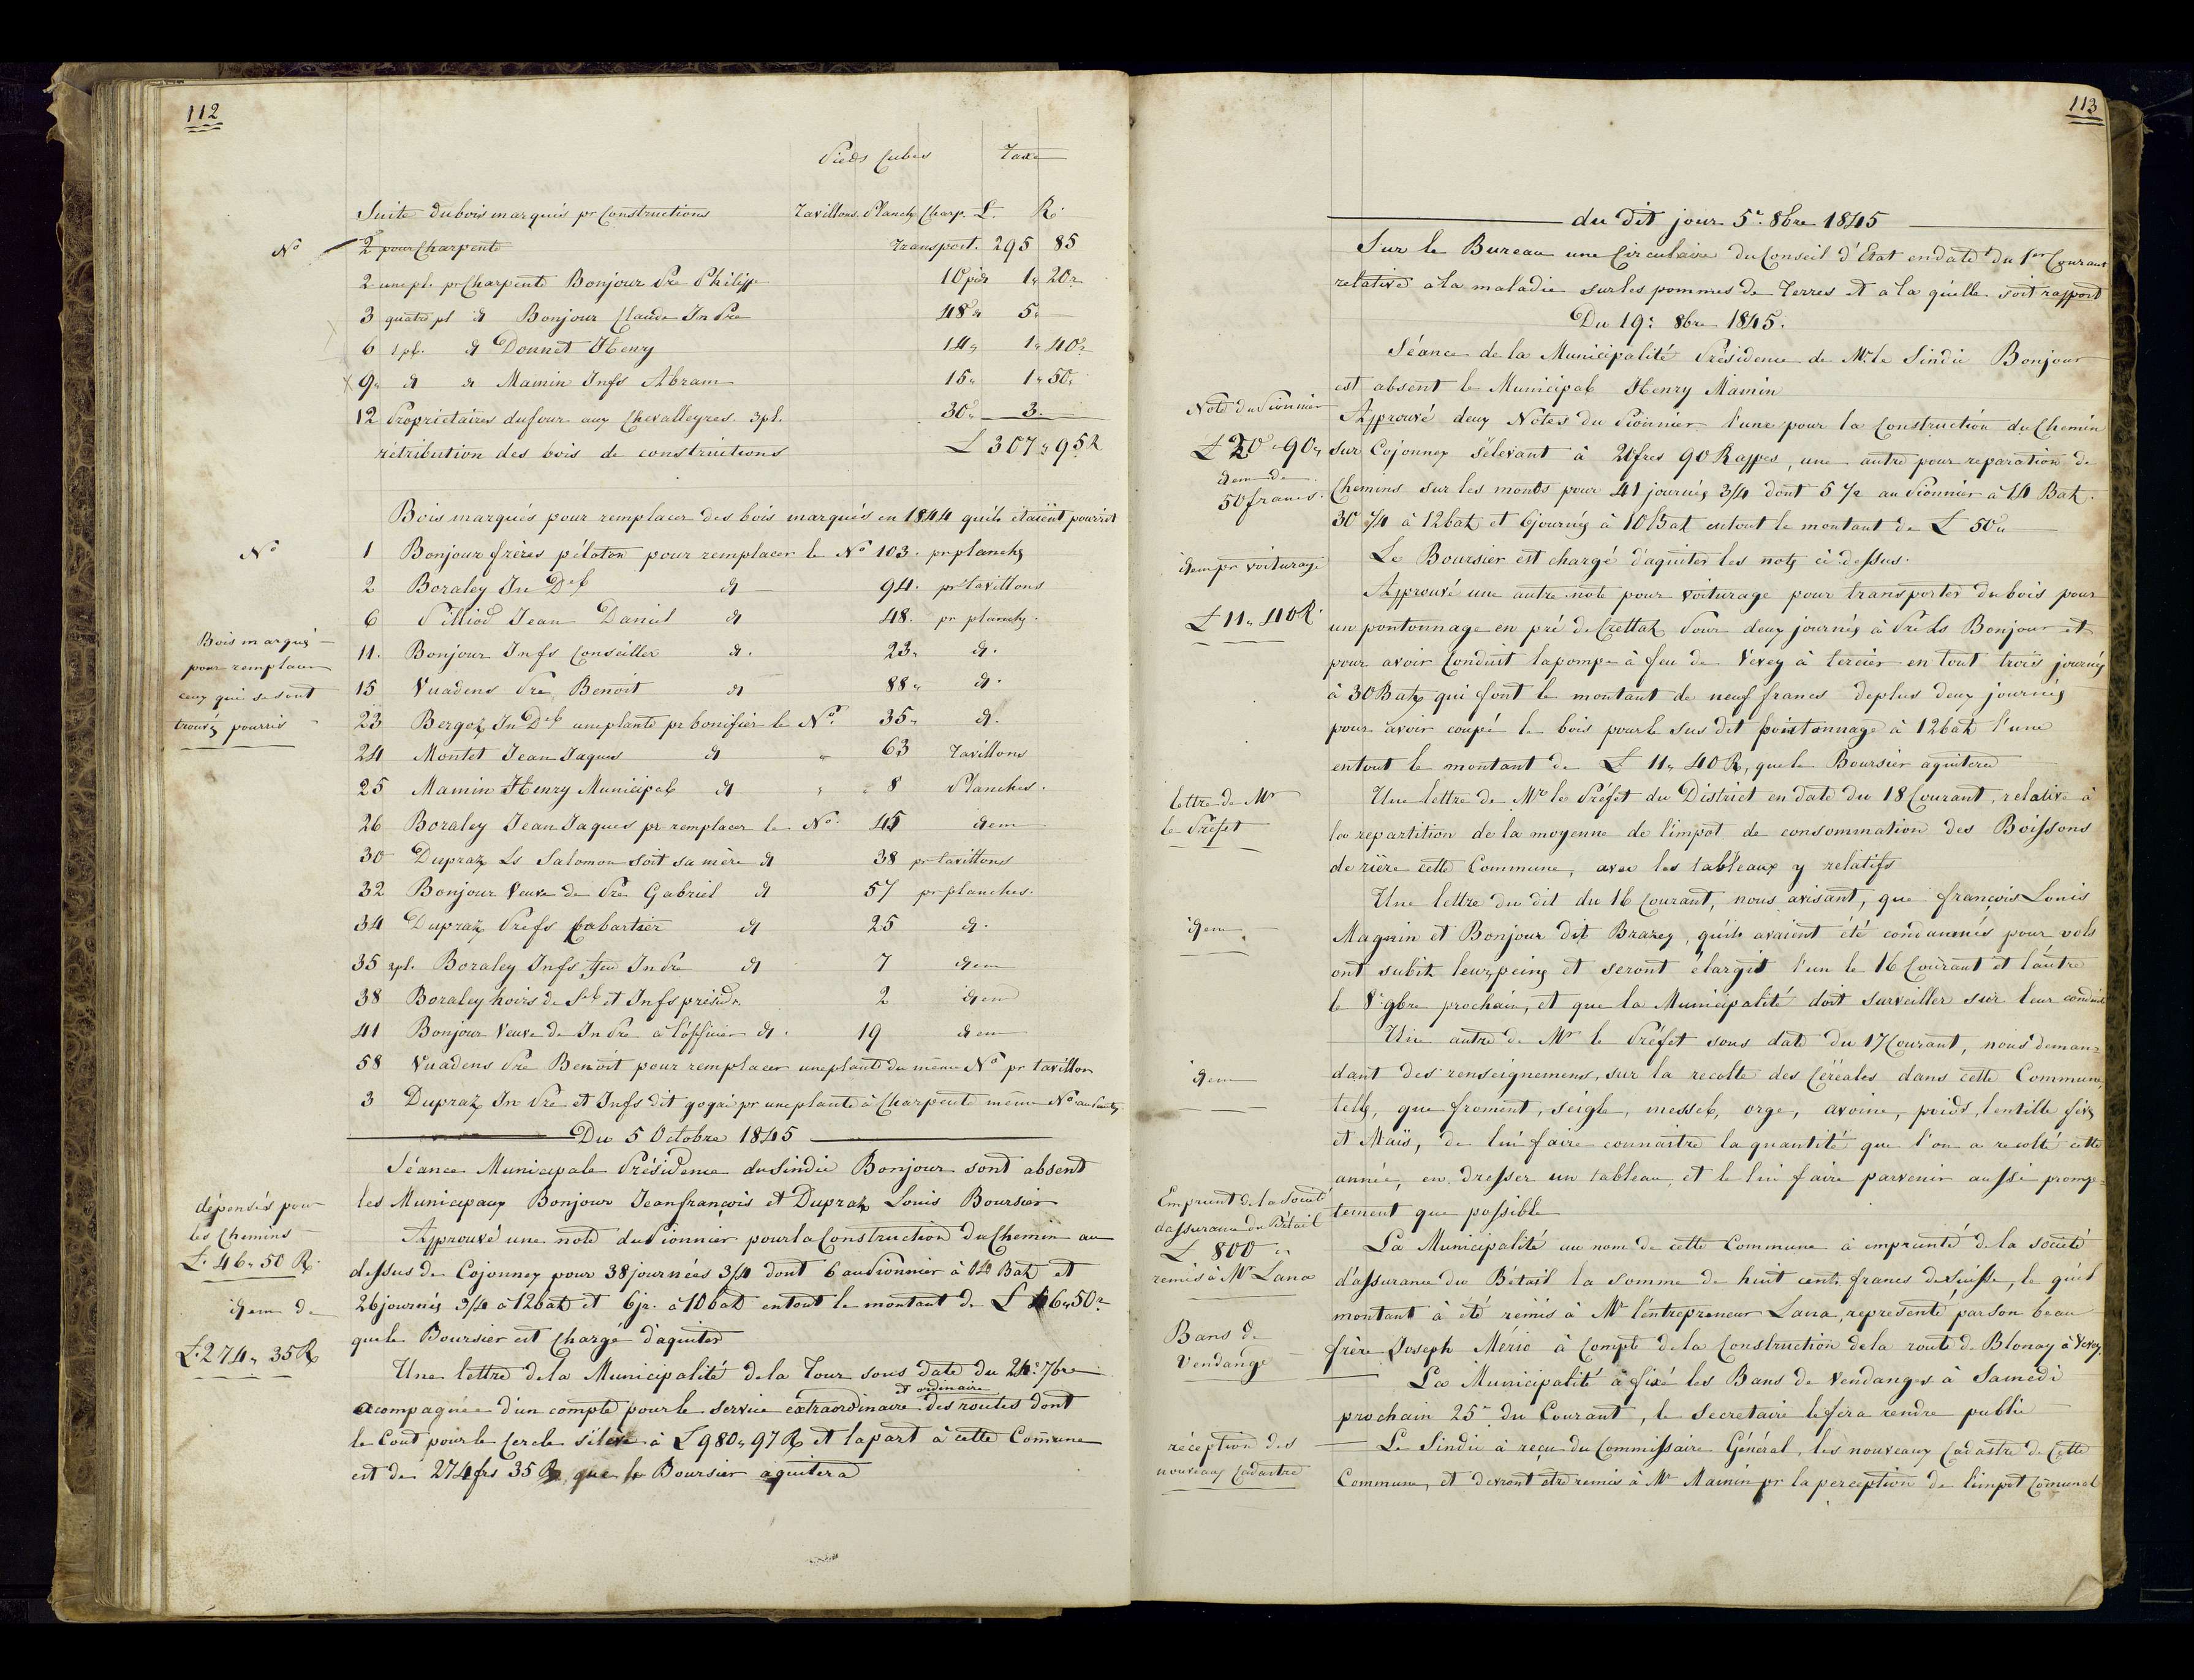 112
Pieds Cubes Taxe
Suite du bois marqués pr Constructions Tavillons. Planch Charp. L. R.
No 2 pour Charpente Transport. 295 85
2 une pl. pr Charpente Bonjour Pre Philippe 10 pids 1 " 20 "
3 quatre pl d Bonjour Claude Jn Pre 48 " 5 "
6 1 pl. d Donnet Henry 14 " 1 " 40 "
9 " d d Mamin Jnfs Abram 15 " 1 " 50 "
12 Propriétaires du four aux Chevalleyres. 3 pl. 30 " 3.
rétribution des bois de constructions L 307 " 95 R
Bois marqués pour remplacer des bois marqués en 1844 qu'ils étaient pourris
No 1 Bonjour frères péloton pour remplacer le No 103. pr planchs
2 Boraley Jn Dl d 94. pr tavillons
6 Pilliod Jean Daniel d 48. pr planchs.
11. Bonjour Jnfs Conseiller d. 23 " d.
15 Vuadens Pre Benoit d 88 " d.
23 Bergoz Jn Dl une plante pr bonifier le No. 35 " d.
24 Montet Jean Jaques d " 63 Tavillons
25 Mamin Henry Municipal d " 8 Planches.
26 Boraley Jean Jaques pr remplacer le No. 45 idem
30 Dupraz Ls Salomon soit sa mère d 38 pr tavillons
32 Bonjour Veuve de Pre Gabriel d 57 pr planches.
34 Dupraz Prefs Cabartier d 25 d.
35 2pl. Boraley Jnfs feu Jn Pre d 7 idem
38 Boraley hoirs de Sl et Jnfs présidt. 2 idem
41 Bonjour Veuve de Jn Pre à l'officier d. 19 idem
58 Vuadens Pre Benoit pour remplacer une plante du même No pr tavillon
3 Dupraz Jn Pre et Jnfs dit gogai pr une plante à Charpente même No
Bois marqués
pour remplacer
ceux qui se sont
trouvés pourris
Du 5 Octobre 1845
Séance Municipale Présidence du Sindic Bonjour sont absent
les Municipaux Bonjour Jean françois et Dupraz Louis Boursier
dépensés pour
les Chemins
L. 46 " 50 R.
Approuvé une note du Pionnier pour la Construction du Chemin au
dessus de Cojonney pour 38 journées 3/4 dont 6 au Pionnier à 14 Batz et
26 journés 3/4 à 12 batz et 6 jr. à 10 batz en tout le montant de L 46 " 50 "
que le Boursier est Chargé d'aquiter
idem de
L. 274 " 35 R
Une lettre de la Municipalité de la Tour sous date du 24e. 7bre
acompagnée d'un compte pour le service extraordinaire et ordinaire des routes dont
le Cout pour le Cercle s'élève à L 980 " 97 R et la part à cette Commune
est de 274 frs 35 R que le Boursier aquitera
113
du dit jour 5e. 8bre 1845
Sur le Bureau une Circulaire du Conseil d'Etat en date du 1er Courant
relative a la maladie sur les pommes de Terres et a la quelle soit rapport
Du 19e. 8bre 1845.
Séance de la Municipalité Présidence de Mr. le Sindic Bonjour
est absent le Municipal Henry Mamin
Note du Pionnier
L 20 " 90 "
idem de
50 francs.
Approuvé deux Notes du Pionnier l'une pour la Construction du Chemin
sur Cojonney s'élevant à 20 fres 90 Rappes, une autre pour reparation de
Chemins sur les monts pour 41 journés 3/4 dont 5 1/2 au Pionnier à 14 Batz.
30 1/4 à 12 batz et 6 journés à 10 Batz en tout le montant de L 50 "
Le Boursier est chargé d'aquiter les nots ci dessus.
idem pr voiturage
L 11 " 40 R.
Approuvé une autre note pour voiturage pour transporter du bois pour
un pontonnage en pré de Crettaz Pour deux journés à Pre Ls Bonjour et
pour avoir Conduit la pompe à feu de Vevey à tercier en tout trois journés
à 30 Batz qui font le montant de neuf francs de plus deux journés
pour avoir coupé le bois pour le sus dit pontonnage à 12 batz l'une
en tout le montant de L 11 " 40 R, que le Boursier aquitera
lettre de Mr
le Préfet
Une lettre de Mr le Préfet du District en date du 18 Courant, relative à
la repartition de la moyenne de l'impot de consommation des Boissons
de rière cette Commune, avec les tableaux y relatifs
idem
Une lettre du dit du 16 Courant, nous avisant, que françois Louis
Magnin et Bonjour dit Brazey, qu'ils avaient été condamnés pour vols
ont subit leurs peins et seront élargit l'un le 16 Courant et l'autre
le 8e 9bre prochain, et que la Municipalité doit surveiller sur leur conduite
idem
Une autre de Mr le Préfet sous date du 17 Courant, nous deman=
dant des renseignemens, sur la recolte des Céréales dans cette Commune,
tells, que froment, seigle, messel, orge, avoine, poids, lentille fèvs
et Maïs, de lui faire connaitre la quantité que l'on a recolté cette
année, en dresser un tableau, et le lui faire parvenir aussi promp=
tement que possible
Emprunt de la Société
d'assurance du Bétail
L 800 "
remis à Mr Lana
La Municipalité au nom de cette Commune à emprunté de la société
d'assurance du Bétail la somme de huit cents francs de Suisse, le quel
montant à été remis à Mr l'entrepreneur Lana, représenté par son beau
frère Joseph Mério à Compte de la Construction de la route de Blonay à Vevey
Bans de
Vendange
La Municipalité à fixé les Bans de Vendanges à Samedi
prochain 25e du Courant, le secretaire le fera rendre public
réception des
nouveaux Cadastre
Le Sindic à reçu du Commissaire Général, les nouveaux Cadastre de Cette
Commune, et devront etre remis à Mr Mamin pr la perception de l'impot Comunal